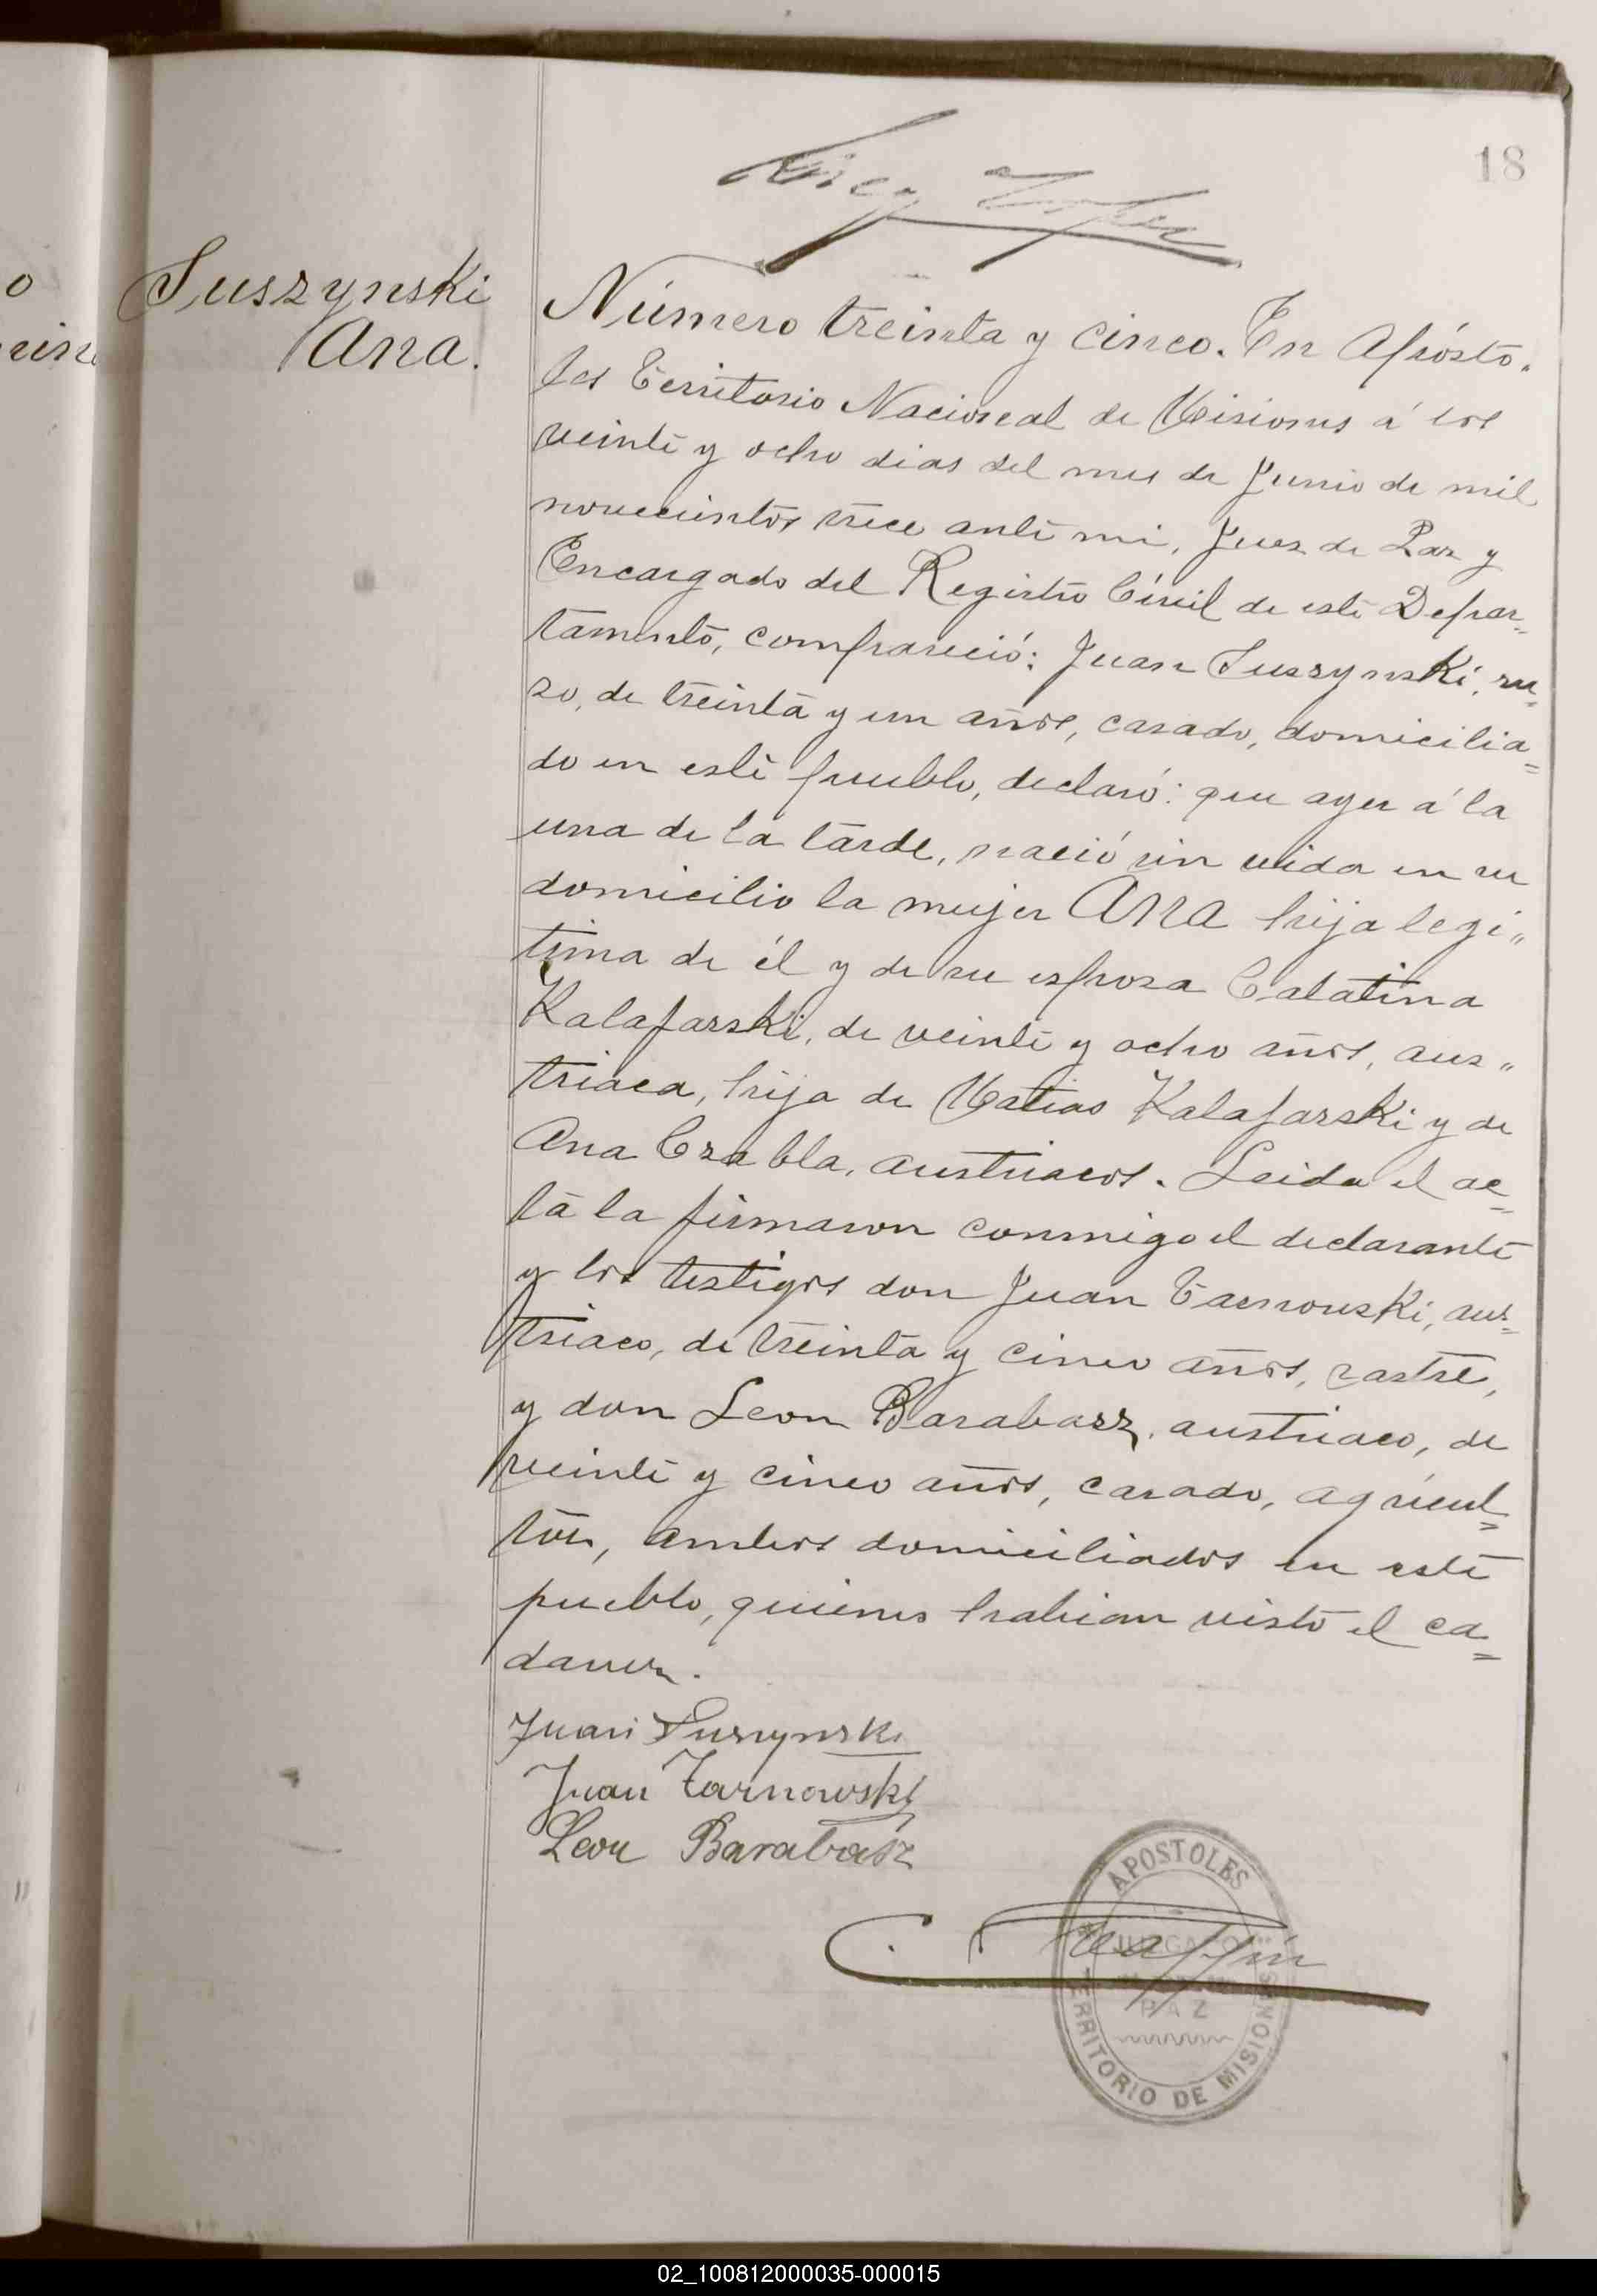 18
Suszynski
Ana.
Número treinta y cinco. En Apósto.
les Territorio Nacional de Misiones á los
veinte y ocho dias del mes de Junio de mil
novecientos trece ante mi, Juez de Paz y
Encargado del Registro Civil de este Depar=
tamento, compareció: Juan Suszynski, ru=
so, de treinta y un años, casado, domicilia=
do en este pueblo, declaró: que ayer á la
una de la tarde, nació sin vida en su
domicilio la mujer Ana hija legi"
tima de él y de su esposa Catatina
Kalafarski, de veinte y ocho años, aus"
triaca, hija de Matias Kalafarski y de
Ana Czabla, austriacos. Leida el ac=
ta la firmaron conmigo el declarante
y los testigos don Juan Tarnowski, aus=
triaco, de treinta y cinco años, sastre,
y don Leon Barabasz, austriaco, de
veinte y cinco años, casado, agricul=
tor, ambos domiciliados en este
pueblo, quienes habian visto el ca=
daver.
Juan Suszynski
Juan Tarnowski
Leon Barabasz
APOSTOLES
JUZGADO
PAZ
TERRITORIO DE MISIONES
02_100812000035-000015